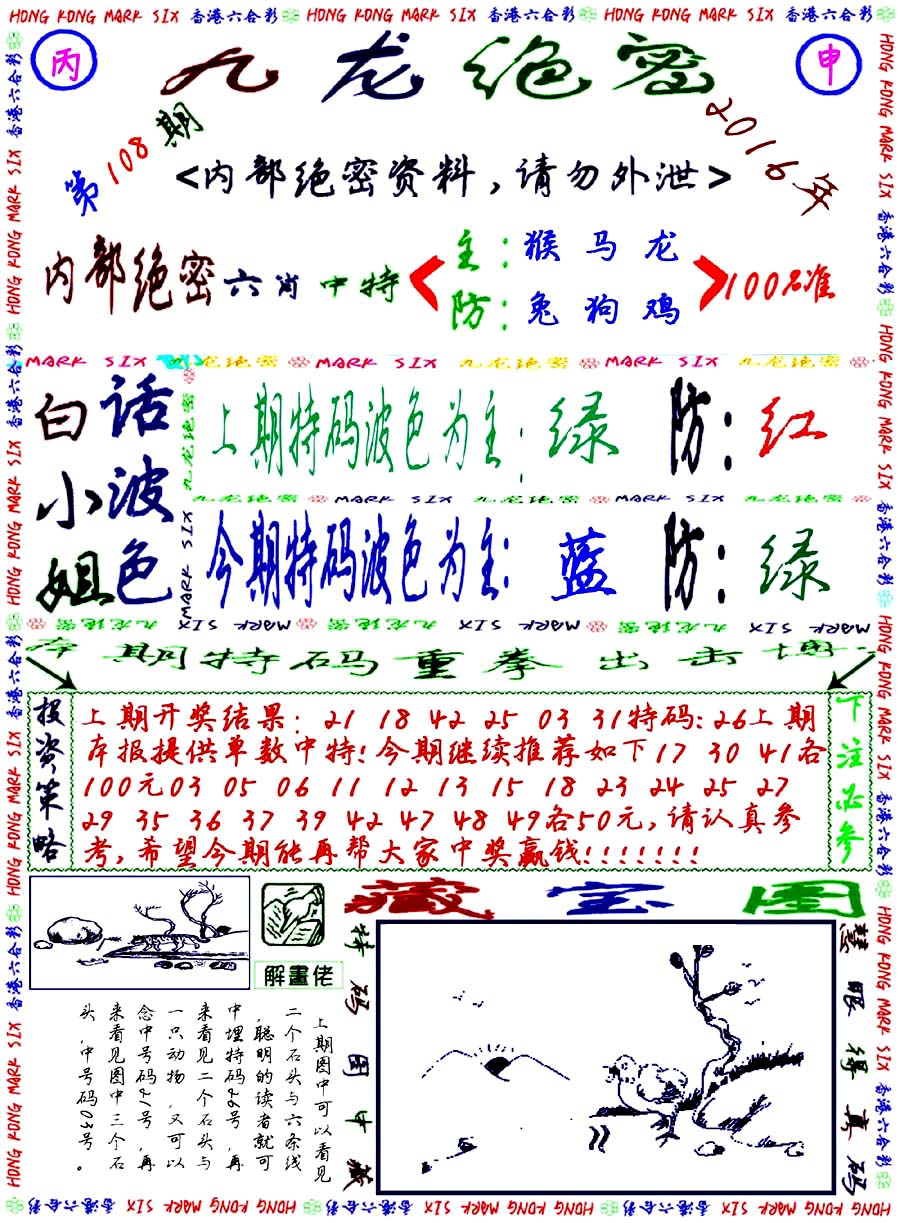 HONG KONG MARK SIX 香港六合彩 HONG KONG MARK SIX 香港六合彩 HONG KONG MARK SIX 香港六合彩
丙
九龙绝密
申
第108期
2016年
<内部绝密资料,请勿外泄>
内部绝密六肖中特
主:猴马龙
防:兔狗鸡
100%准
MARK SIX 九龙绝密 MARK SIX 九龙绝密 MARK SIX 九龙绝密
白话
小波
姐色
上期特码波色为主:绿 防:红
九龙绝密 MARK SIX 九龙绝密 MARK SIX 九龙绝密
今期特码波色为主:蓝 防:绿
九龙绝密 MARK SIX 九龙绝密 MARK SIX 九龙绝密 MARK SIX
本期特码重拳出击博
投资策略
上期开奖结果:21 18 42 25 03 31特码:26上期
本报提供单数中特!今期继续推荐如下17 30 41各
100元03 05 06 11 12 13 15 18 23 24 25 27
29 35 36 37 39 42 47 48 49各50元,请认真参
考,希望今期能再帮大家中奖赢钱!!!!!!!
下注必参
藏宝图
解畫佬
上期图中可以看见
二个石头与六条线
,聪明的读者就可
中埋特码26号,再
来看见二个石头与
一只动物,又可以
念中号码21号,再
来看见图中三个石
头,中号码03号。
特码图中藏
慧眼得真码
HONG KONG MARK SIX 香港六合彩 HONG KONG MARK SIX 香港六合彩 HONG KONG MARK SIX 香港六合彩